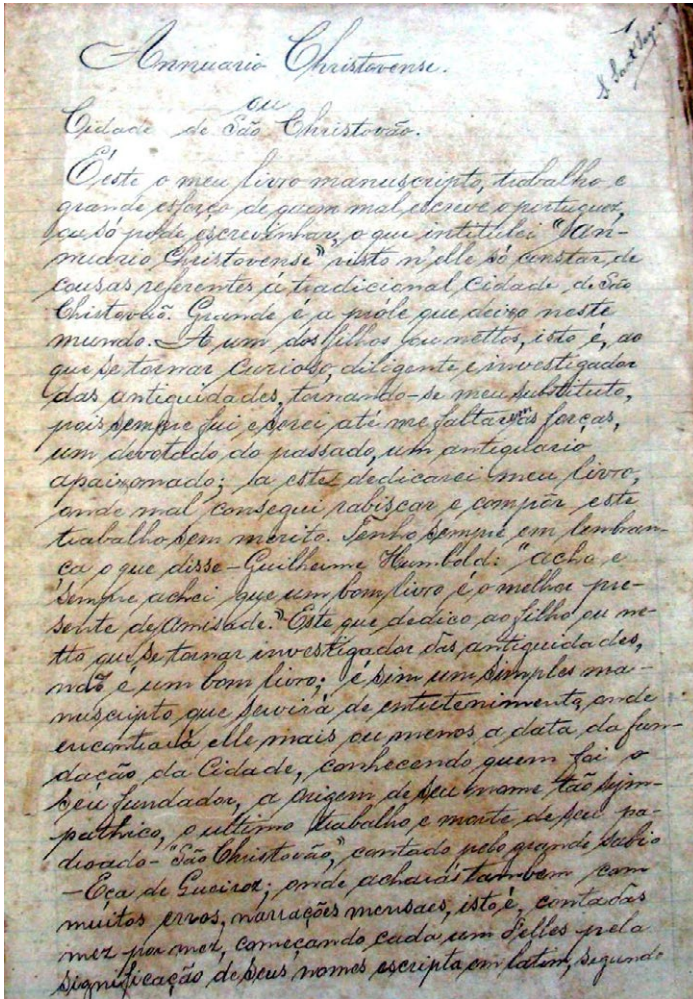 1
Annuario Christovense.
ou
Cidade de São Christovão.
É este o meu livro manuscripto, trabalho e
grande esforço de quem mal escreve o portuguez,
ou só pode escrevinhar, o que intitulei "An-
nuario Christovense" visto n'elle só constar de
cousas referentes á tradicional cidade de São
Christovão. Grande é a próle que deixo neste
mundo. A um dos filhos ou nettos, isto é, ao
que se tornar curioso, diligente e investigador
das antiguidades, tornando-se meu substituto,
pois sempre fui e serei até me faltarem as forças,
um devotado do passado, um antiquario
apaixonado; a este dedicarei meu livro,
onde mal consegui rabiscar e compôr este
trabalho sem merito. Tenho sempre em lembran-
ça o que disse - Guilherme Humbold: "acho e
sempre achei que um bom livro é o melhor pre-
sente de amisade." Este que dedico ao filho ou ne-
tto que se tornar investigador das antiguidades,
não é um bom livro; é sim um simples ma-
nuscripto que servirá de entretenimento, onde
encontrará elle mais ou menos a data da fun-
dação da Cidade, conhecendo quem foi o
seu fundador, a origem de seu nome tão sym-
pathico, o ultimo trabalho e morte de seu pa-
droado - "São Christovão," contado pelo grande sabio
- Eça de Queiroz; onde acharás tambem com
muitos erros, narrações mensaes, isto é, contadas
mez por mez, começando cada um d'elles pela
significação de seus nomes escripta em latim, segundo